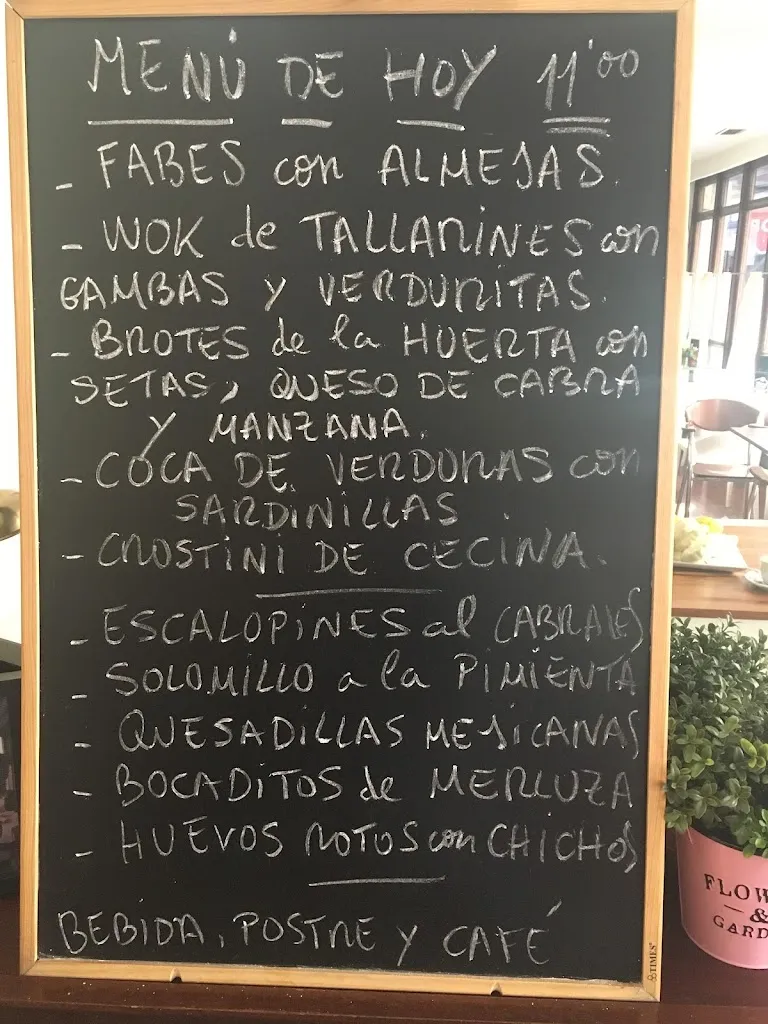 MENÚ DE HOY 11'00
- FABES con ALMEJAS.
- WOK de TALLARINES con
GAMBAS Y VERDURITAS.
- BROTES de la HUERTA con
SETAS, QUESO DE CABRA
Y MANZANA.
- COCA DE VERDURAS con
SARDINILLAS
- CROSTINI DE CECINA.
- ESCALOPINES al CABRALES
- SOLOMILLO a la PIMIENTA
- QUESADILLAS MEJICANAS
- BOCADITOS de MERLUZA
- HUEVOS ROTOS con CHICHOS
BEBIDA, POSTRE Y CAFÉ
TIMES
FLOW
&
GARD